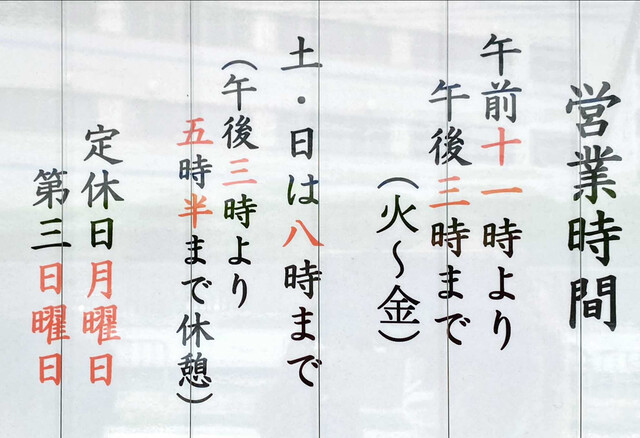 営業時間
午前十一時より
午後三時まで
(火〜金)
土・日は八時まで
(午後三時より
五時半まで休憩)
定休日月曜日
第三日曜日